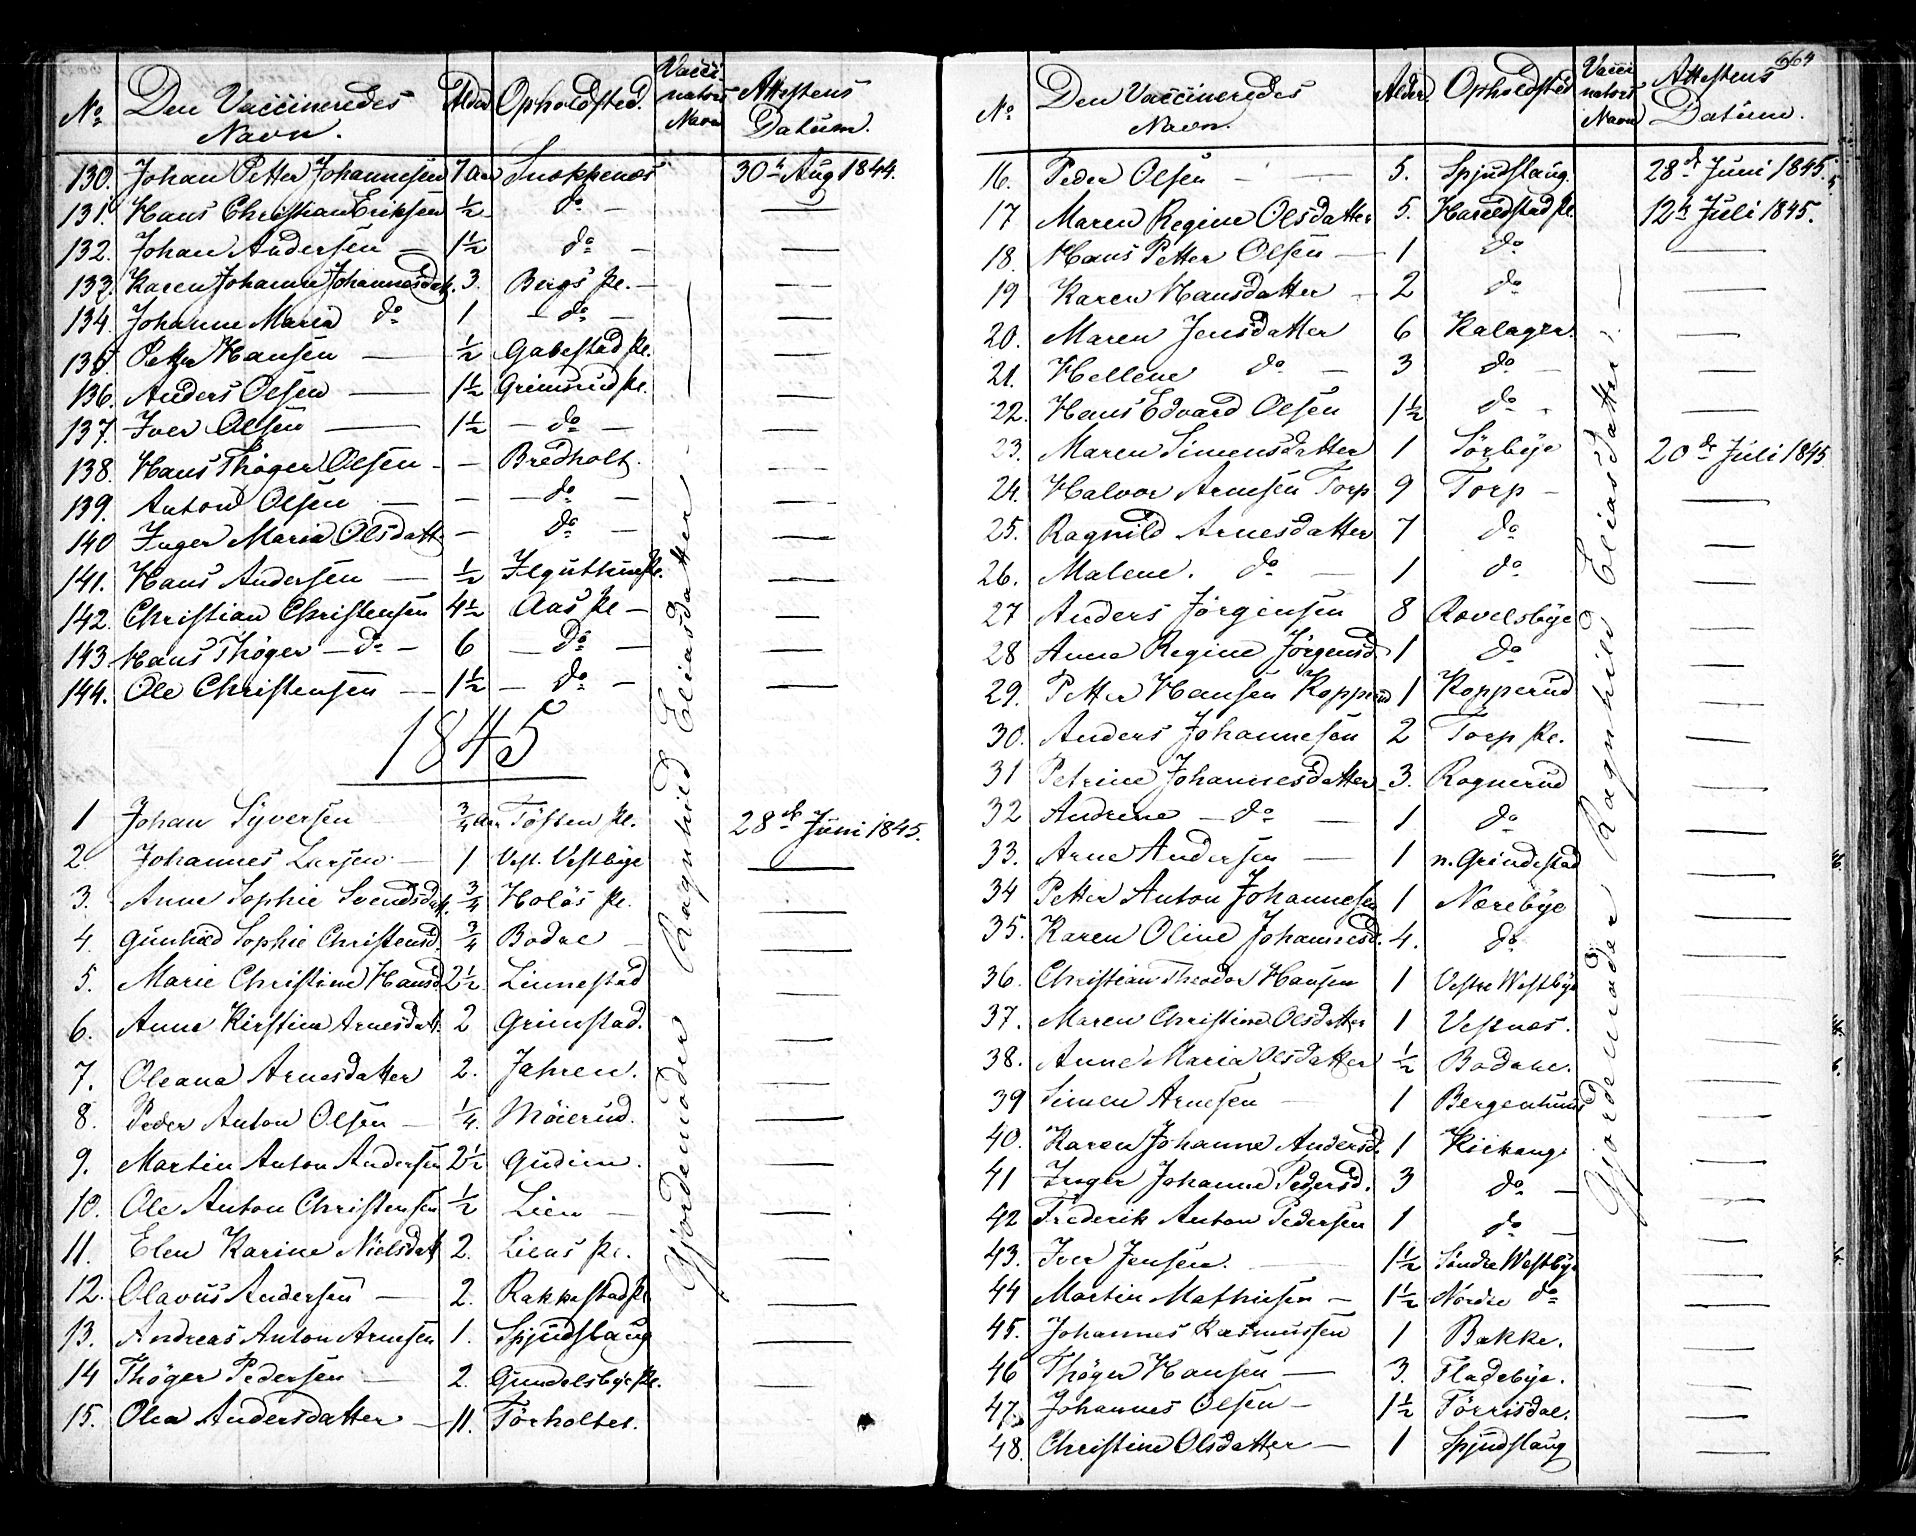 No. Den Vaccineredes Navn. Alder Opholdsted. Vaccinators Navn Attestens Datum.
130. Johan Petter Johannesen 7 Aar Snoppenæs 30te Aug 1844.
131. Hans Christian Eriksen ½ do
132. Johan Andersen — 1½ do —
133. Karen Johanne Johannesdatt. 3. Bergs Pl. —
134. Johanne Maria do 1 — do —
135. Petter Hansen — ½ Gabestad Pl.
136. Anders Olsen — 1½ Grimsrud Pl.
137. Iver Olsen — 1½ — do —
138. Hans Thøger Olsen - — Bredholt.
139. Anton Olsen — — — do —
140 Inger Maria Olsdatt — do —
141. Hans Andersen — ½
142. Christian Christensen 4½ Aas Pl —
143 Hans Thøger — do — 6 — Do —
144. Ole Christensen — 1½ — do —
1845
1 Johan Syversen ¾ Aar Töften Pl. 28de Juni 1845.
2. Johannes Larsen — 1 Vest. Vestbÿe
3. Anne Sophie Svendsdatt. ¾ Holös Pl.
4. Gunhild Sophie Christensd. ¾ Bodal —
5. Marie Christine Hansd. 2½ Linnestad
6. Anne Kirstine Arnesdatt. 2 Grimstad.
7. Oleana Arnesdatter 2. Jahren.
8. Peder Anton Olsen — ¼. Möierud.
9. Martin Anton Andersen 2½ Gudim.
10. Ole Anton Christensen ½ Lien —
11. Elen Karine Nielsdatt 2. Liens Pl.
12. Olavus Andersen — 2. Rakkestad Pl
13. Andreas Anton Arnesen 1. Spjudslaug
14 Thöger Pedersen — 2. Gundelsbye Pl.
15. Olea Andersdatter — 11. Törholtet.
Gjordemoder Ragnhild Eliasdatter
664
No. Den Vaccineredes Navn. Alder. Opholdsted Vaccinators Navn Attestens Datum.
16. Peder Olsen — — 5. Spjudslaug. 28de Juni 1845.
17 Maren Regine Olsdatter 5. Hareldstad Pl. 12te Juli 1845.
18. Hans Petter Olsen — 1 do
19 Karen Hansdatter - 2 do
20. Maren Jensdatter 6 Kalager.
21. Hellene do — 3 do —
22. Hans Edvard Olsen 1½ do -
23. Maren Simensdatter 1 Sörbÿe 20de Juli 1845
24. Halvor Arnesen Torp 9 Torp —
25. Ragnild Arnesdatter 7 do
26. Malene. do — 1 do
27 Anders Jörgensen 8 Ravelsbÿe
28 Anne Regine Jörgensd. 1 do
29. Petter Hansen Kopperud 1 Kopperud
30. Anders Johannesen 2 Torp Pl.
31 Petrine Johannesdatter 3. Rognerud
32 Andrine — do — 1 do
33. Arne Andersen — 1 n. Grindestad
34 Petter Anton Johannesen 1 Nærebÿe
35. Karen Oline Johannesd. 4. do.
36. Christian Theodor Hansen 1 Vestre Westbÿe
37. Maren Christine Olsdatter 1 Vestnæs.
38. Anne Maria Olsdatter ½ Bodahl.
39 Simen Arnesen 1 Bergenhuus
40. Karen Johanne Andersd. 1 Kirkeng.
41 Inger Johanne Pedersd. 3 do —
42 Frederik Anton Pedersen 1 do —
43. Iver Jensen. 1½ Söndre Westbÿe
44 Martin Mathiesen — 1½ Nördre do
45. Johannes Rasmussen 1 Bakke.
46 Thöger Hansen — 3. Fladebÿe.
47. Johannes Olsen — 1½ Törrisdal.
48. Christine Olsdatter — 1 Spjudslaug
Gjordemoder Ragnhild Eliasdatter